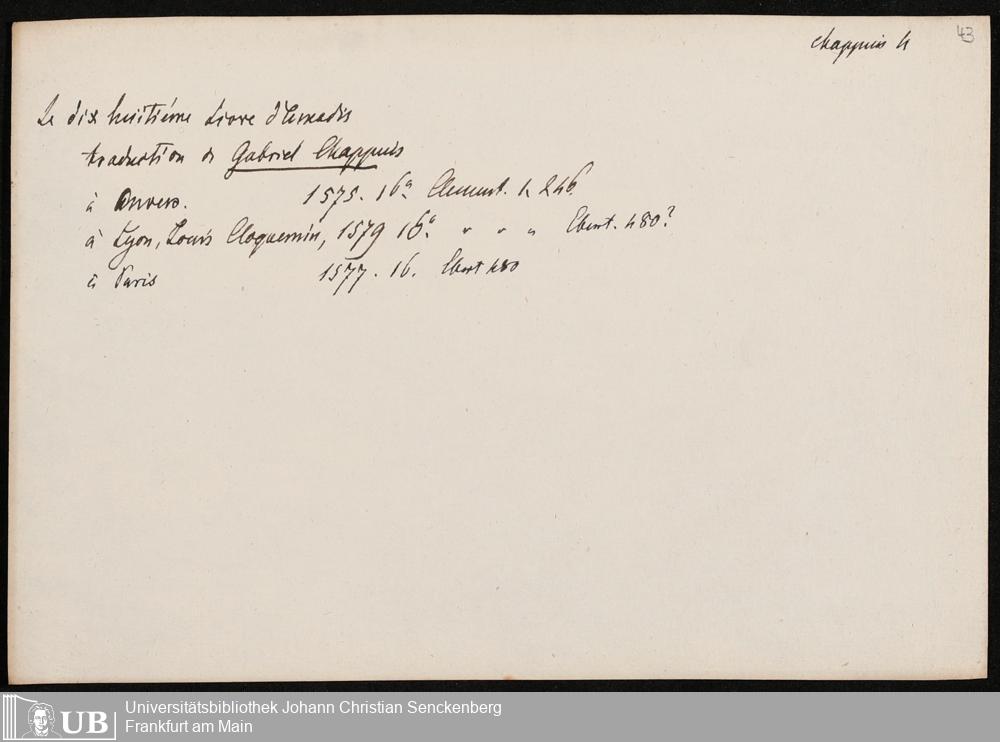 43
Chappuis
Le dix huitiéme Livre d'Amadis
traduction de Gabriel Chappuis
à Anvers. 1575. 16°. Clement. 1. 246.
à Lyon, Louis Cloquemin, 1579 16°. " " " Ebert. 480?
à Paris 1577. 16. Ebert 480
UB
Universitätsbibliothek Johann Christian Senckenberg
Frankfurt am Main